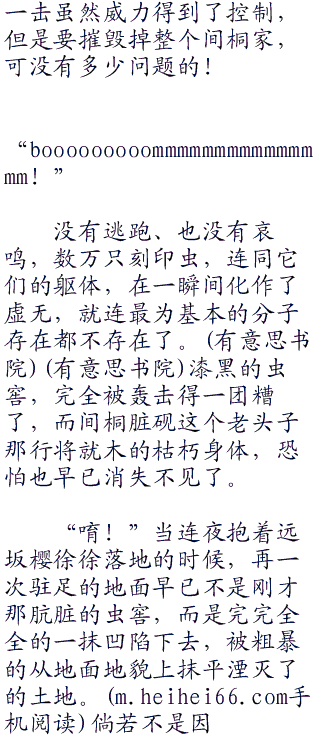 一击虽然威力得到了控制，
但是要摧毁掉整个间桐家，
可没有多少问题的！
“boooooooooommmmmmmmmmmmm
mm！”
没有逃跑、也没有哀
鸣，数万只刻印虫，连同它
们的躯体，在一瞬间化作了
虚无，就连最为基本的分子
存在都不存在了。(有意思书
院)(有意思书院)漆黑的虫
窖，完全被轰击得一团糟
了，而间桐脏砚这个老头子
那行将就木的枯朽身体，恐
怕也早已消失不见了。
“唷！”当连夜抱着远
坂樱徐徐落地的时候，再一
次驻足的地面早已不是刚才
那肮脏的虫窖，而是完完全
全的一抹凹陷下去，被粗暴
的从地面地貌上抹平湮灭了
的土地。(m.heihei66.com手
机阅读)倘若不是因